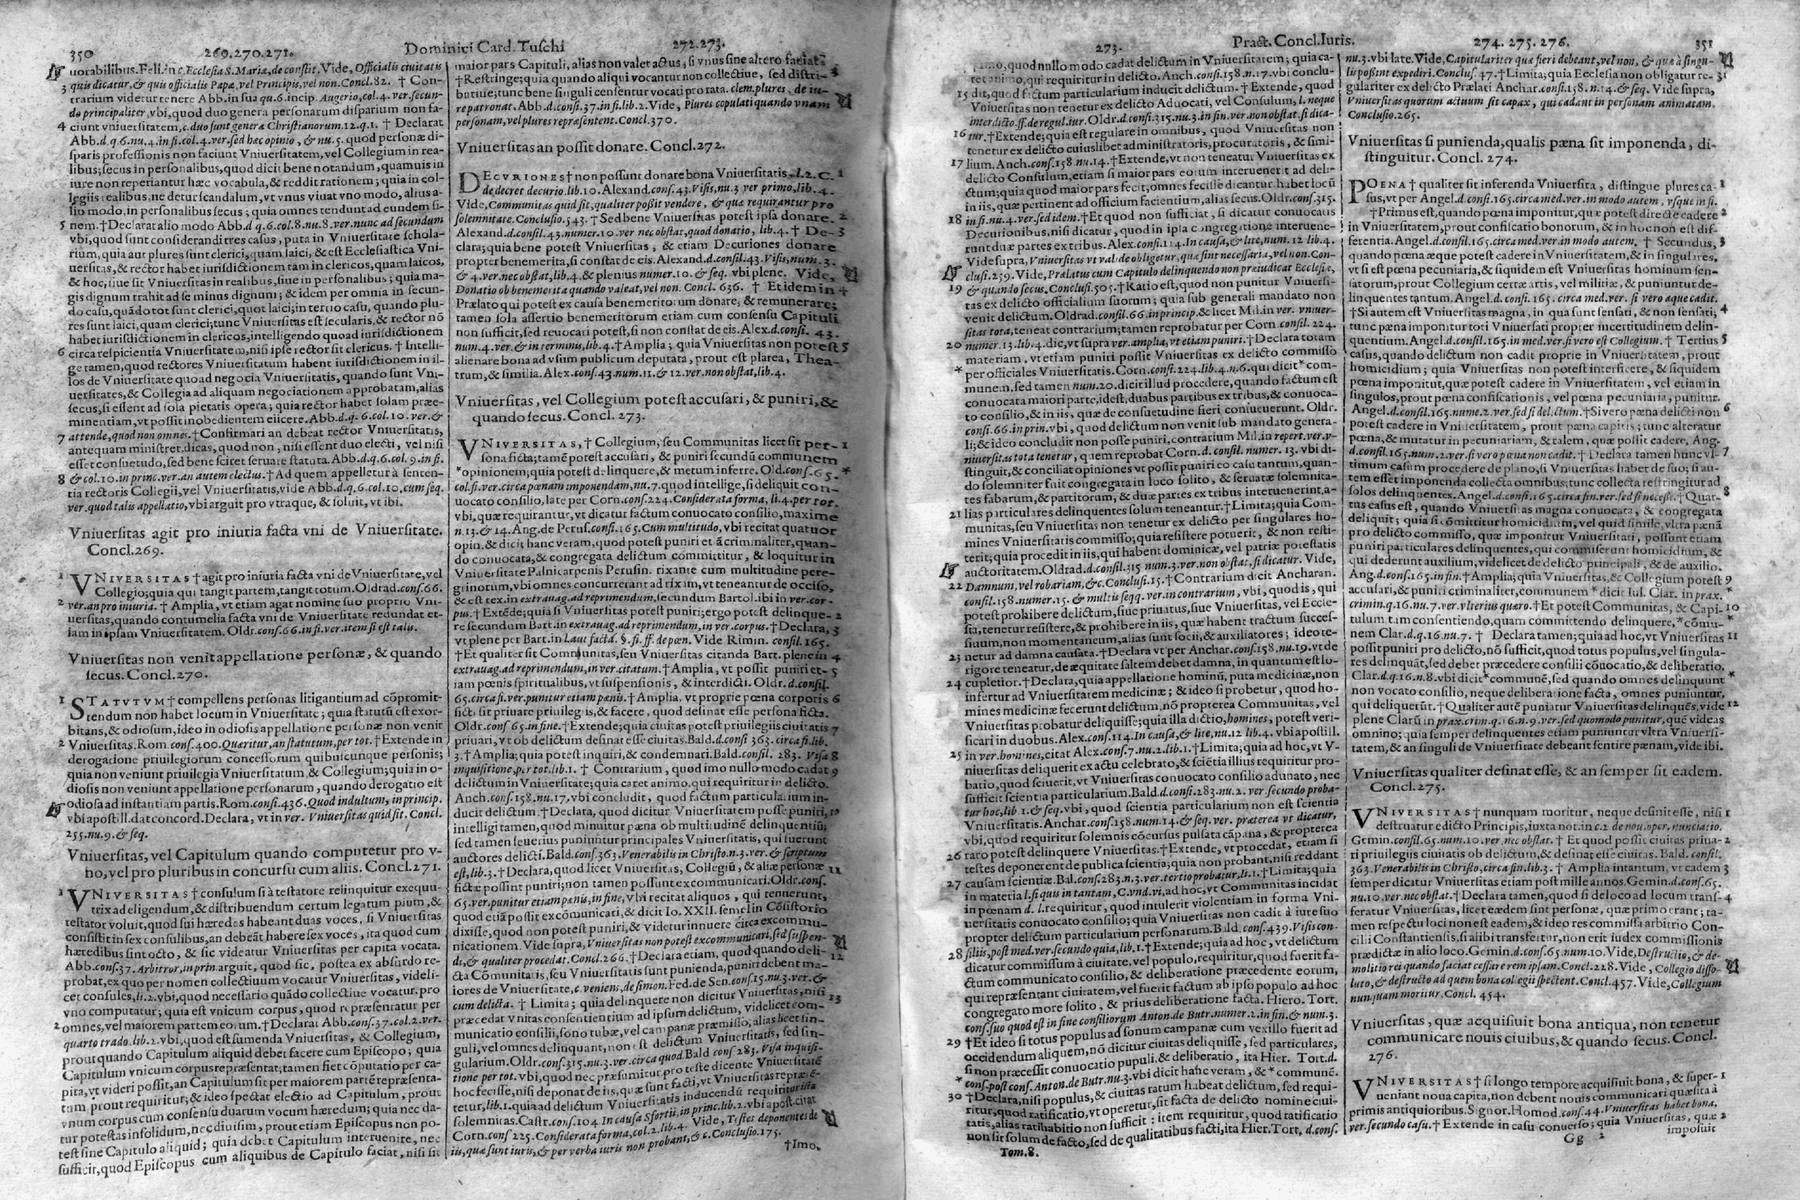 350 269.270.271. Dominici Card. Tuschi 272.273.
uorabilibus. Felin. c. Ecclesia S. Maria, de constit. Vide, Officialis ciuitatis
3 quis dicatur, & quis officialis Papæ, vel Principis, vel non. Concl. 82. † Con-
trarium videtur tenere Abb. in sua qu. 6. incip. Augerio, col. 4. ver. secun-
do principaliter, vbi, quod duo genera personarum disparium non fa-
4 ciunt vniuersitatem, c. duo sunt genera Christianorum. 12. q. 1. † Declarat
Abb. d. q. 6. nu. 4. in fi. col. 4. ver. sed hæc opinio, & nu. 5. quod personæ di-
sparis professionis non faciunt Vniuersitatem, vel Collegium in rea-
libus; secus in personalibus, quod dicit bene notandum, quamuis in
iure non reperiantur hæc vocabula, & reddit rationem; quia in col-
legiis realibus, ne detur scandalum, vt vnus viuat vno modo, alius a-
lio modo, in personalibus secus; quia omnes tendunt ad eundem fi-
5 nem. † Declarat alio modo Abb. d. q. 6. col. 8. nu. 8. ver. nunc ad secundum
vbi, quod sunt considerandi tres casus, puta in Vniuersitate schola-
rium, quia aut plures sunt clerici, quam laici, & est Ecclesiastica Vni-
uersitas, & rector habet iurisdictionem tam in clericos, quam laicos,
& hoc, siue sit Vniuersitas in realibus, siue in personalibus; quia ma-
gis dignum trahit ad se minus dignum; & idem per omnia in secun-
do casu, quãdo tot sunt clerici, quot laici; in tertio casu, quando plu-
res sunt laici, quam clerici; tunc Vniuersitas est secularis, & rector nõ
habet iurisdictionem in clericos, intelligendo quoad iurisdictionem
6 circa respicientia Vniuersitatem, nisi ipse rector sit clericus. † Intelli-
ge tamen, quod rectores Vniuersitatum habent iurisdictionem in il-
los de Vniuersitate quoad negocia Vniuersitatis, quando sunt Vni-
uersitates, & Collegia ad aliquam negociationem approbatam, alias
secus, si essent ad sola pietatis opera; quia rector habet solam præe-
minentiam, vt possit inobedientem eiicere. Abb. d. q. 6. col. 10. ver. &
7 attende, quod non omnes. † Confirmari an debeat rector Vniuersitatis,
antequam ministret, dicas, quod non, nisi essent duo electi, vel nisi
esset consuetudo, sed bene sciret seruare statuta. Abb. d. q. 6. col. 9. in fi.
8 & col. 10. in princ. ver. an autem electus. † Ad quem appelletur à senten-
tia rectoris Collegii, vel Vniuersitatis, vide Abb. d. q. 6. col. 10. cum seq.
ver. quod talis appellatio, vbi arguit pro vtraque, & soluit, vt ibi.
Vniuersitas agit pro iniuria facta vni de Vniuersitate.
Concl. 269.
1 VNIVERSITAS † agit pro iniuria facta vni de Vniuersitate, vel
Collegio; quia qui tangit partem, tangit totum. Oldrad. cons. 66.
2 ver. an pro iniuria. † Amplia, vt etiam agat nomine suo proprio Vni-
uersitas, quando contumelia facta vni de Vniuersitate redundat et-
iam in ipsam Vniuersitatem. Oldr. cons. 66. in fi. ver. item si est talis.
Vniuersitas non venit appellatione personæ, & quando
secus. Concl. 270.
1 STATVTVM † compellens personas litigantium ad cõpromit-
tendum non habet locum in Vniuersitate; quia statutũ est exor-
bitans, & odiosum, ideo in odiosis appellatione personæ non venit
2 Vniuersitas. Rom. cons. 400. Quæritur, an statutum, per tot. † Extende in
derogatione priuilegiorum concessorum quibuscunque personis;
quia non veniunt priuilegia Vniuersitatum, & Collegium; quia in o-
diosis non veniunt appellatione personarum, quando derogatio est
odiosa ad instantiam partis. Rom. cons. 436. Quod indultum, in princip.
vbi apostill. dat concord. Declara, vt in ver. Vniuersitas quid sit. Concl.
255. nu. 9. & seq.
Vniuersitas, vel Capitulum quando computetur pro v-
no, vel pro pluribus in concursu cum aliis. Concl. 271.
1 VNIVERSITAS † consulum si à testatore relinquitur exequu-
trix ad eligendum, & distribuendum certum legatum pium, &
testator voluit, quod sui hæredes habeant duas voces, si Vniuersitas
consistit in sex consulibus, an debeãt habere sex voces, ita quod cum
hæredibus sint octo, & sic videatur Vniuersitas per capita vocata.
Abb. cons. 37. Arbitror, in prin. arguit, quod sic, postea ex absurdo re-
probat, ex quo per nomen collectiuum vocatur Vniuersitas, videli-
cet consules, li. 2. vbi, quod necessario quãdo collectiue vocatur, pro
vno computatur; quia est vnicum corpus, quod repræsentatur per
2 omnes, vel maiorem partem eorum. † Declarat Abb. cons. 37. col. 2. ver.
quarto trado. lib. 2. vbi, quod est sumenda Vniuersitas, & Collegium,
prout quando Capitulum aliquid debet facere cum Episcopo; quia
Capitulum vnicum corpus repræsentat; tamen fiet cõputatio per ca-
pita, vt videri possit, an Capitulum sit per maiorem partē repræsenta-
tum prout requiritur; & ideo spectat electio ad Capitulum, prout
vnum corpus cum consensu duarum vocum hæredum; quia nec da-
tur potestas in solidum, nec diuisim, prout etiam Episcopus non po-
test sine Capitulo aliquid; quia debet Capitulum interuenire, nec
sufficit, quod Episcopus cum aliquibus de Capitulo faciat, nisi sit
maior pars Capituli, alias non valet actus, si vnus sine altero faciat.
† Restringe; quia quando aliqui vocantur non collectiue, sed distri- 3
butiue, tunc bene singuli censentur vocati pro rata. clem. plures, de iu-
re patronat. Abb. d. cons. 37. in fi. lib. 2. Vide, Plures copulati quando vnam
personam, vel plures repræsentent. Concl. 370.
Vniuersitas an possit donare. Concl. 272.
DECVRIONES † non possunt donare bona Vniuersitatis. l. 2. C. 1
de decret. decurio. lib. 10. Alexand. cons. 43. Visis, nu. 3. ver. primo, lib. 4.
Vide, Communitas quid sit, qualiter possit vendere, & quæ requirantur pro
solemnitate. Conclusio. 543. † Sed bene Vniuersitas potest ipsa donare. 2
Alexand. d. consil. 43. numer. 10. ver. nec obstat, quod donatio, lib. 4. † De- 3
clara; quia bene potest Vniuersitas, & etiam Decuriones donare
propter benemerita, si constat de eis. Alexand. d. consil. 43. Visis, num. 3.
& 4. ver. nec obstat, lib. 4. & plenius numer. 10. & seq. vbi plene. Vide,
Donatio ob benemerita quando valeat, vel non. Concl. 636. † Et idem in 4
Prælato qui potest ex causa benemeritorum donare, & remunerare;
tamen sola assertio benemeritorum etiam cum consensu Capituli
non sufficit, sed reuocari potest, si non constat de eis. Alex. d. consi. 43.
num. 4. ver. & in terminis, lib. 4. † Amplia; quia Vniuersitas non potest 5
alienare bona ad vsum publicum deputata, prout est platea, Thea-
trum, & similia. Alex. cons. 43. num. 11. & 12. ver. non obstat, lib. 4.
Vniuersitas, vel Collegium potest accusari, & puniri, &
quando secus. Concl. 273.
VNIVERSITAS, † Collegium, seu Communitas licet sit per- 1
sona ficta; tamē potest accusari, & puniri secundũ communem
* opinionem; quia potest delinquere, & metum inferre. Old. cons. 65. *
col. fi. ver. circa pœnam imponendam, nu. 7. quod intellige, si deliquit con-
uocato consilio, late per Corn. cons. 224. Considerata forma, li. 4. per tot.
vbi, quæ requirantur, vt dicatur factum conuocato consilio, maxime
n. 13. & 14. Ang. de Perus. cons. 165. Cum multitudo, vbi recitat quatuor
opin. & dicit hanc veram, quod potest puniri et ã criminaliter, quan-
do conuocata, & congregata delictum committitur, & loquitur in
Vniuersitate Palnicarpenis Perusin. rixante cum multitudine pere-
ginorum, vel omnes concurrerant ad rixam, vt teneantur de occiso,
& est tex. in extrauag. ad reprimendum, secundum Bartol. ibi in ver. cor-
pus. † Extẽde; quia si Vniuersitas potest puniri; ergo potest delinque- 2
re secundum Bart. in extrauag. ad reprimendum, in ver. corpus. † Declara, 3
vt plene per Bart. in l. aut facta. §. fi. ff. de pœn. Vide Rimin. consil. 165.
† Et qualiter sit Communitas, seu Vniuersitas citanda Bart. plene in 4
extrauag. ad reprimendum, in ver. citatum. † Amplia, vt possit puniri et- 5
iam pœnis spiritualibus, vt suspensionis, & interdicti. Oldr. d. consil.
65. circa fi. ver. punitur etiam pœnis. † Amplia, vt proprie pœna corporis 6
ficti. sit priuare priuilegiis, & facere, quod desinat esse persona ficta.
Oldr. cons. 65. in fine. † Extende; quia ciuitas potest priuilegiis ciuitatis 7
priuari, vt ob delictum desinat esse ciuitas. Bald. d. cons. 363. circa fi. lib.
3. † Amplia; quia potest inquiri, & condemnari. Bald. consil. 283. Visa 8
inquisitione, per tot. lib. 1. † Contrarium, quod imo nullo modo cadat 9
delictum in Vniuersitate; quia caret animo, qui requiritur in delicto.
Anch. cons. 158. nu. 17. vbi concludit, quod factum particularium in-
ducit delictum. † Declara, quod dicitur Vniuersitatem posse puniri, 10
intelligi tamen, quod minuitur pœna ob multitudinē delinquentiũ;
sed tamen seuerius puniuntur principales Vniuersitatis, qui fuerunt
auctores delicti. Bald. cons. 363. Venerabilis in Christo. n. 3. ver. & scriptum
est, lib. 3. † Declara, quod licet Vniuersitas, Collegiũ, & aliæ personæ 11
fictæ possint puniri; non tamen possunt excommunicari. Oldr. cons.
65. ver. punitur etiam pœnis, in fine, vbi recitat aliquos, qui tenuerunt,
quod etiã possit excõmunicari, & dicit Io. XXII. semel in Cõsistorio
dixisse, quod non potest puniri, & videtur innuere circa excommu-
nicationem. Vide supra, Vniuersitas non potest excommunicari, sed suspen-
di, & qualiter procedat. Concl. 266. † Declara etiam, quod quando deli- 12
cta Cõmunitatis, seu Vniuersitatis sunt punienda, puniri debent ma-
iores de Vniuersitate, c. veniens, de simon. Fed. de Sen. cons. 15. nu. 3. ver. &
cum delicta. † Limita; quia delinquere non dicitur Vniuersitas, nisi 13
præcedat vnitas consentientium ad ipsum delictum, videlicet com-
municatio consilii, sono tubæ, vel campanæ præmisso, alias licet sin-
guli, vel omnes delinquant, non est delictum Vniuersitatis, sed sin-
gularium. Oldr. cons. 315. nu. 3. ver. circa quod. Bald. cons. 283. Visa inquisi-
tione per tot. vbi, quod nec præsumitur pro teste dicente Vniuersitatem
hoc fecisse, nisi deponat de iis, quæ sunt facti, vt Vniuersitas repræsē-
tetur, lib. 1. quia ad delictum Vniuersitatis inducendũ requiritur
solemnitas. Castr. cons. 104. In causa Sfortii, in princ. lib. 2. vbi apostillat
Corn. cons. 225. Considerata forma, col. 2. lib. 4. Vide, Testes deponentes de
iis, quæ sunt iuris, & per verba iuris non probant, & c. Conclusio. 175.
† Imo,
273. Pract. Concl. Iuris. 274. 275. 276. 351
imo, quod nullo modo cadat delictum in Vniuersitatem; quia ca-
ret animo, qui requiritur in delicto. Anch. cons. 158. n. 17. vbi conclu-
15 dit, quod factum particularium inducit delictum. † Extende, quod
Vniuersitas non tenetur ex delicto Aduocati, vel Consulum, l. neque
interdicto. ff. de regul. iur. Oldr. d. cons. 315. nu. 3. in fin. ver. non obstat. si dica-
16 tur. † Extende; quia est regulare in omnibus, quod Vniuersitas non
tenetur ex delicto cuiuslibet administratoris, procuratoris, & simi-
17 lium. Anch. cons. 158. nu. 14. † Extende, vt non teneatur Vniuersitas ex
delicto Consulum, etiam si maior pars eorum interuenerit ad deli-
ctum; quia quod maior pars fecit, omnes fecisse dicantur habet locũ
in iis, quæ pertinent ad officium facientium, alias secus. Oldr. cons. 315.
18 in fi. nu. 4. ver. sed idem. † Et quod non sufficiat, si dicatur conuocatus
Decurionibus, nisi dicatur, quod in ipsa congregatione interuene-
runt duæ partes ex tribus. Alex. cons. 114. In causa, & lite, num. 12. lib. 4.
Vide supra, Vniuersitas vt valide obligetur, quæ sint necessaria, vel non. Con-
clusi. 259. Vide, Prælatus cum Capitulo delinquendo non præiudicat Ecclesiæ,
19 & quando secus. Conclusi. 505. † Ratio est, quod non punitur Vniuersi-
tas ex delicto officialium suorum; quia sub generali mandato non
venit delictum. Oldrad. consil. 66. in princip. & licet Mil. in ver. vniuer-
sitas tota, teneat contrarium; tamen reprobatur per Corn. consil. 224.
20 numer. 13. lib. 4. dic, vt supra ver. amplia, vt etiam puniri. † Declara totam
* materiam, vt etiam puniri possit Vniuersitas ex delicto commisso
per officiales Vniuersitatis. Corn. cons. 224. lib. 4. n. 6. qui dicit * com-
munem, sed tamen num. 20. dicit illud procedere, quando factum est
conuocata maiori parte, idest, duabus partibus ex tribus, & conuoca-
to consilio, & in iis, quæ de consuetudine fieri consueuerunt. Oldr.
cons. 66. in prin. vbi, quod delictum non venit sub mandato genera-
li; & ideo concludit non posse puniri, contrarium Mil. in repert. ver. v-
niuersitas tota tenetur, quem reprobat Corn. d. consil. numer. 13. vbi di-
stinguit, & conciliat opiniones vt possit puniri eo casu tantum, quan-
do solemniter fuit congregata in loco solito, & seruatæ solemnita-
tes fabarum, & partitorum, & duæ partes ex tribus interuenerint, a-
21 lias particulares delinquentes solum teneantur. † Limita; quia Com-
munitas, seu Vniuersitas non tenetur ex delicto per singulares ho-
mines Vniuersitatis commisso; quia resistere potuerit, & non resti-
terit; quia procedit in iis, qui habent dominicæ, vel patriæ potestatis
auctoritatem. Oldrad. cons. 315. num. 3. ver. non obstat. si dicatur. Vide,
22 Damnum, vel robariam, & c. Conclusi. 15. † Contrarium dicit Ancharan.
consil. 158. numer. 15. & multis seqq. ver. in contrarium, vbi, quod is, qui
potest prohibere delictum, siue priuatus, siue Vniuersitas, vel Eccle-
sia, tenetur resistere, & prohibere in iis, quæ habent tractum succes-
siuum, non momentaneum, alias sunt socii, & auxiliatores; ideo te-
23 netur ad damna causata. † Declara, vt per Anchar. cons. 158. nu. 19. vt de
rigore teneatur, de æquitate saltem debet damna, in quantum est lo-
24 cupletior. † Declara, quia appellatione hominũ, puta medicinæ, non
infertur ad Vniuersitatem medicinæ; & ideo si probetur, quod ho-
mines medicinæ fecerunt delictum, nõ propterea Communitas, vel
Vniuersitas probatur deliquisse; quia illa dictio, homines, potest veri-
ficari in duobus. Alex. cons. 114. In causa, & lite, nu. 12. lib. 4. vbi apostill.
25 in ver. homines, citat Alex. cons. 7. nu. 2. lib. 1. † Limita; quia ad hoc, vt V-
niuersitas deliquerit ex actu celebrato, & sciētia illius requiritur pro-
batio, quod sciuerit, vt Vniuersitas conuocato consilio adunato, nec
sufficit scientia particularium. Bald. d. cons. 283. nu. 2. ver. secundo proba-
tur hoc, lib. 1. & seq. vbi, quod scientia particularium non est scientia
Vniuersitatis. Anchar. cons. 158. num. 14. & seq. ver. præterea vt dicatur,
vbi, quod requiritur solemnis cõcursus pulsata cãpana, & propterea
26 raro potest delinquere Vniuersitas. † Extende, vt procedat, etiam si
testes deponerent de publica scientia; quia non probant, nisi reddant
27 causam scientiæ. Bald. cons. 283. n. 3. ver. tertio probatur, li. 1. † Limita; quia
in materia l. si quis in tantam, C. vnd. vi, ad hoc, vt Communitas incidat
in pœnam d. l. requiritur, quod intulerit violentiam in forma Vni-
uersitatis conuocato consilio; quia Vniuersitas non cadit à iure suo
propter delictum particularium personarum. Bald. cons. 439. Visis con-
28 siliis, post med. ver. secundo quia, lib. 1. † Extende; quia ad hoc, vt delictum
dicatur commissum à ciuitate, vel populo, requiritur, quod fuerit fa-
ctum communicato consilio, & deliberatione præcedente eorum,
qui repræsentant ciuitatem, vel fuerit factum ab ipso populo ad hoc
congregato more solito, & prius deliberatione facta. Hiero. Tort.
cons. suo quod est in fine consiliorum Anton. de Butr. numer. 2. in fin. & num. 3.
29 † Et ideo si totus populus ad sonum campanæ cum vexillo fuerit ad
occidendum aliquem, nõ dicitur ciuitas deliquisse, sed particulares,
si non præcessit conuocatio populi, & deliberatio, ita Hier. Tort. d.
* cons. post cons. Anton. de Butr. nu. 3. vbi dicit hanc veram, & * communē.
30 † Declara, nisi populus, & ciuitas ratum habeat delictum, sed requi-
ritur, quod ratificatio, vt operetur, sit facta de delicto nomine ciui-
tatis, alias ratihabitio non sufficit; item requiritur, quod ratificatio
non sit solum de facto, sed de qualitatibus facti, ita Hier. Tort. d. cons.
Tom. 8.
nu. 3. vbi late. Vide, Capitulariter quæ fieri debeant, vel non, & quæ à singu-
lis possint expediri. Conclus. 47. † Limita; quia Ecclesia non obligatur re- 31
gulariter ex delicto Prælati. Anchar. cons. 158. n. 14. & seq. Vide supra,
Vniuersitas quorum actuum sit capax, qui cadant in personam animatam.
Conclusio. 265.
Vniuersitas si punienda, qualis pœna sit imponenda, di-
stinguitur. Concl. 274.
POENA † qualiter sit inferenda Vniuersitati, distingue plures ca- 1
sus, vt per Angel. d. cons. 165. circa med. ver. in modo autem, vsque in fi.
† Primus est, quando pœna imponitur, quæ potest directe cadere 2
in Vniuersitatem, prout confiscatio bonorum, & in hoc non est dif-
ferentia. Angel. d. cons. 165. circa med. ver. in modo autem. † Secundus, 3
quando pœna æque potest cadere in Vniuersitatem, & in singulares,
vt si est pœna pecuniaria, & siquidem est Vniuersitas hominum sen-
satorum, prout Collegium certæ artis, vel militiæ, & puniuntur de-
linquentes tantum. Angel. d. cons. 165. circa med. ver. si vero æque cadit.
† Si autem est Vniuersitas magna, in qua sunt sensati, & non sensati, 4
tunc pœna imponitur toti Vniuersitati propter incertitudinem delin-
quentium. Angel. d. cons. 165. in med. ver. si vero est Collegium. † Tertius 5
casus, quando delictum non cadit proprie in Vniuersitatem, prout
homicidium; quia Vniuersitas non potest interficere, & siquidem
pœna imponitur, quæ potest cadere in Vniuersitatem, vel etiam in
singulos, prout pœna confiscationis, vel pœna pecuniaria, punitur.
Angel. d. cons. 165. nume. 2. ver. sed si delictum. † Si vero pœna delicti non 6
potest cadere in Vniuersitatem, prout pœna capitis; tunc alteratur
pœna, & mutatur in pecuniariam, & talem, quæ possit cadere. Ang.
d. cons. 165. num. 2. ver. si vero pœna non cadit. † Declara tamen hunc vl- 7
timum casum procedere de plano, si Vniuersitas habet de suo; si au-
tem esset imponenda collecta omnibus; tunc collecta restringitur ad
solos delinquentes. Angel. d. cons. 165. circa fin. ver. sed si necesse. † Quar- 8
tus casus est, quando Vniuersitas magna conuocata, & congregata
deliquit; quia si cõmittitur homicidium, vel quid simile, vltra pœnã
pro delicto commisso, quæ imponitur Vniuersitati, possunt etiam
puniri particulares delinquentes, qui commiserunt homicidium, &
qui dederunt auxilium, videlicet de delicto principali, & de auxilio.
Ang. d. cons. 165. in fin. † Amplia; quia Vniuersitas, & Collegium potest 9
accusari, & puniri criminaliter, communem * dicit Iul. Clar. in prax. *
crimin. q. 16. nu. 7. ver. vlterius quero. † Et potest Communitas, & Capi- 10
tulum tam consentiendo, quam committendo delinquere, * cõmu- *
nem Clar. d. q. 16. nu. 7. † Declara tamen; quia ad hoc, vt Vniuersitas 11
possit puniri pro delicto, nõ sufficit, quod totus populus, vel singula-
res delinquãt, sed debet præcedere consilii cõuocatio, & deliberatio.
Clar. d. q. 16. n. 8. vbi dicit * communē, sed quando omnes delinquunt *
non vocato consilio, neque deliberatione facta, omnes puniuntur,
qui deliquerũt. † Qualiter autē punitur Vniuersitas delinquēs, vide 12
plene Clarũ in prax. crim. q. 16. n. 9. ver. sed quomodo punitur, quẽ videas
omnino; quia semper delinquentes etiam puniuntur vltra Vniuersi-
tatem, & an singuli de Vniuersitate debeant sentire pœnam, vide ibi.
Vniuersitas qualiter desinat esse, & an semper sit eadem.
Concl. 275.
VNIVERSITAS † nunquam moritur, neque definit esse, nisi 1
destruatur edicto Principis, iuxta not. in c. 2. de nou. oper. nunciatio.
Gemin. consil. 65. num. 10. ver. nec obstat. † Et quod possit ciuitas priua- 2
ri priuilegiis ciuitatis ob delictum, & desinat esse ciuitas. Bald. consil.
363. Venerabilis in Christo, circa fin. lib. 3. † Amplia intantum, vt eadem 3
semper dicatur Vniuersitas etiam post mille annos. Gemin. d. cons. 65.
nu. 10. ver. nec obstat. † Declara tamen, quod si de loco ad locum trans- 4
feratur Vniuersitas, licet eædem sint personæ, quæ primo erant; ta-
men respectu loci non est eadem, & ideo res commissa arbitrio Con-
cilii Constantiensis, si alibi transfeitur, non erit iudex commissionis
prædictæ in alio loco. Gemin. d. cons. 65. num. 10. Vide, Destructio, & de-
molitio rei quando faciat cessare rem ipsam. Concl. 228. Vide, Collegio disso-
luto, & destructo ad quem bona collegii spectent. Concl. 457. Vide, Collegium
nunquam moritur. Concl. 454.
Vniuersitas, quæ acquisiuit bona antiqua, non tenetur
communicare nouis ciuibus, & quando secus. Concl.
276.
VNIVERSITAS † si longo tempore acquisiuit bona, & super- 1
ueniant noua capita, non debent nouis communicari quæsita à
primis antiquioribus. Signor. Homod. cons. 44. Vniuersitas habet bona,
per secundo casu. † Extende in casu conuerso; quia Vniuersitas, quæ 2
Gg 2 imposuit